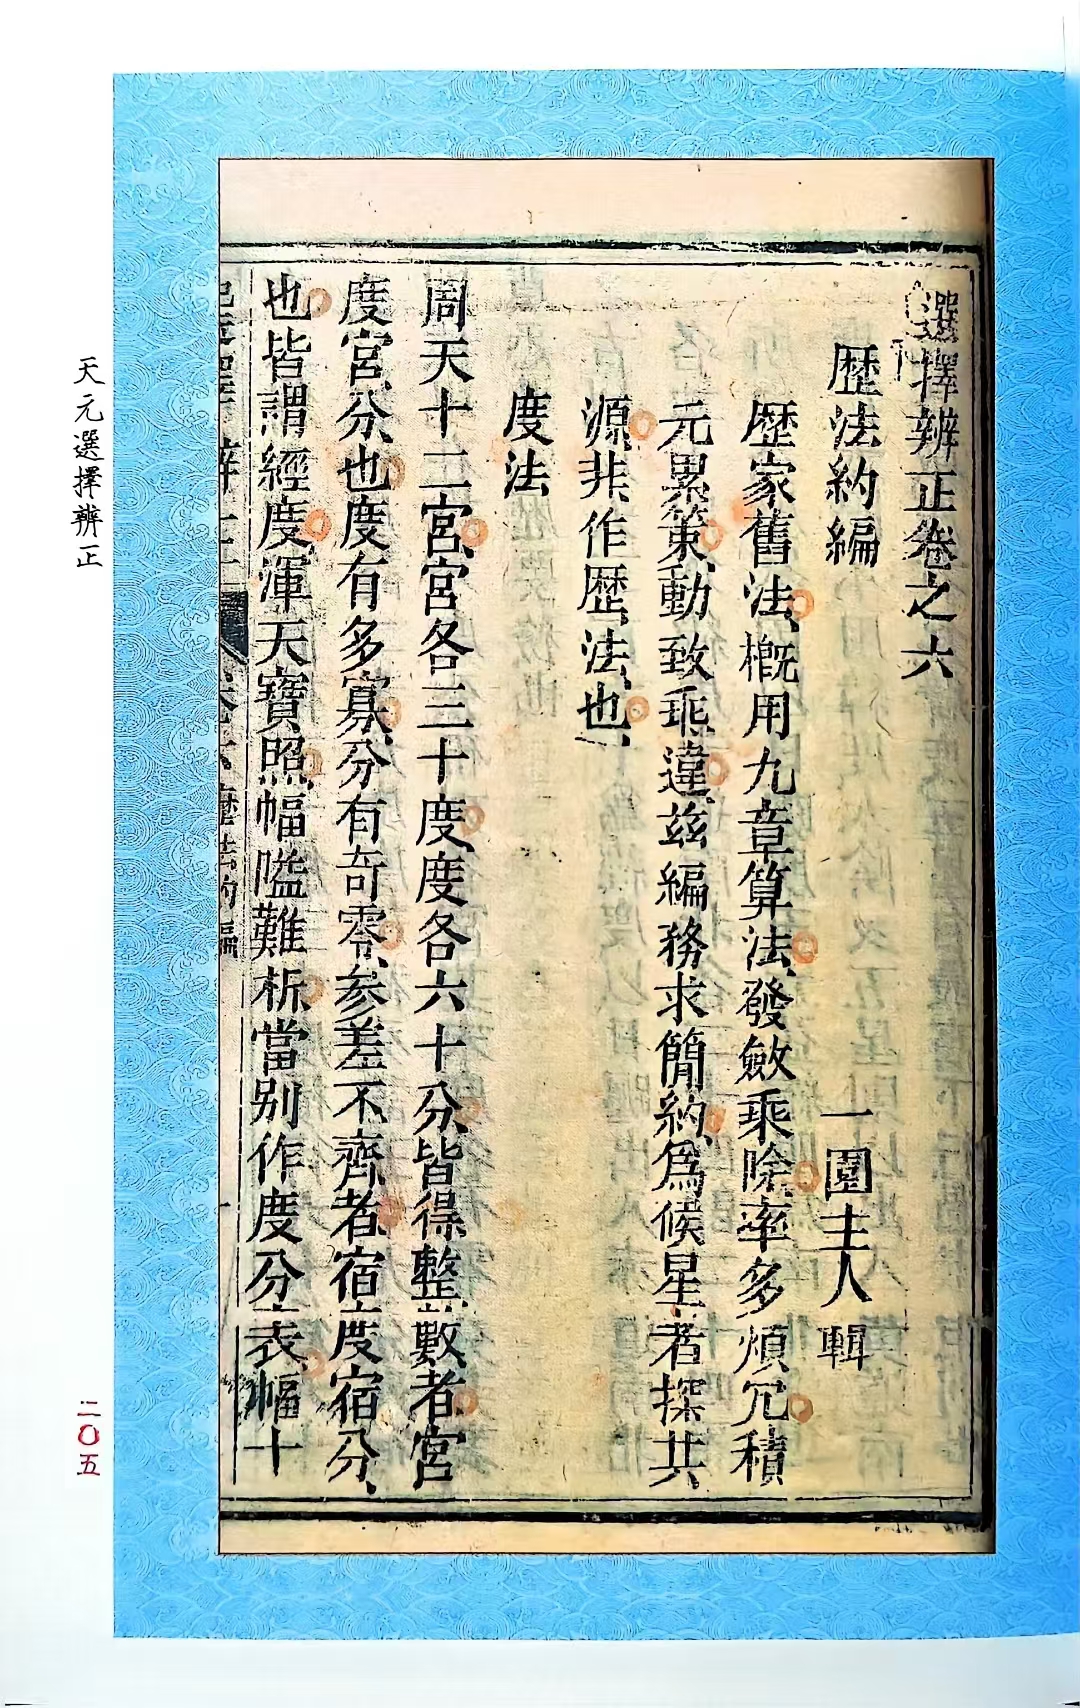 選擇辨正卷之六
歷法約編
一園主人輯
歷家舊法槪用九章算法發斂乘除率多煩冗積
元累策動致乖違兹編務求簡約爲候星者探其
源非作歷法也
度法
周天十二宮宮各三十度度各六十分皆得整數者宮
度宮分也度有多寡分有奇零參差不齊者宿度宿分
也皆謂經度渾天寶照幅隘難析當别作度分表幅十
卷六 歷法約編
天元選擇辨正
二〇五